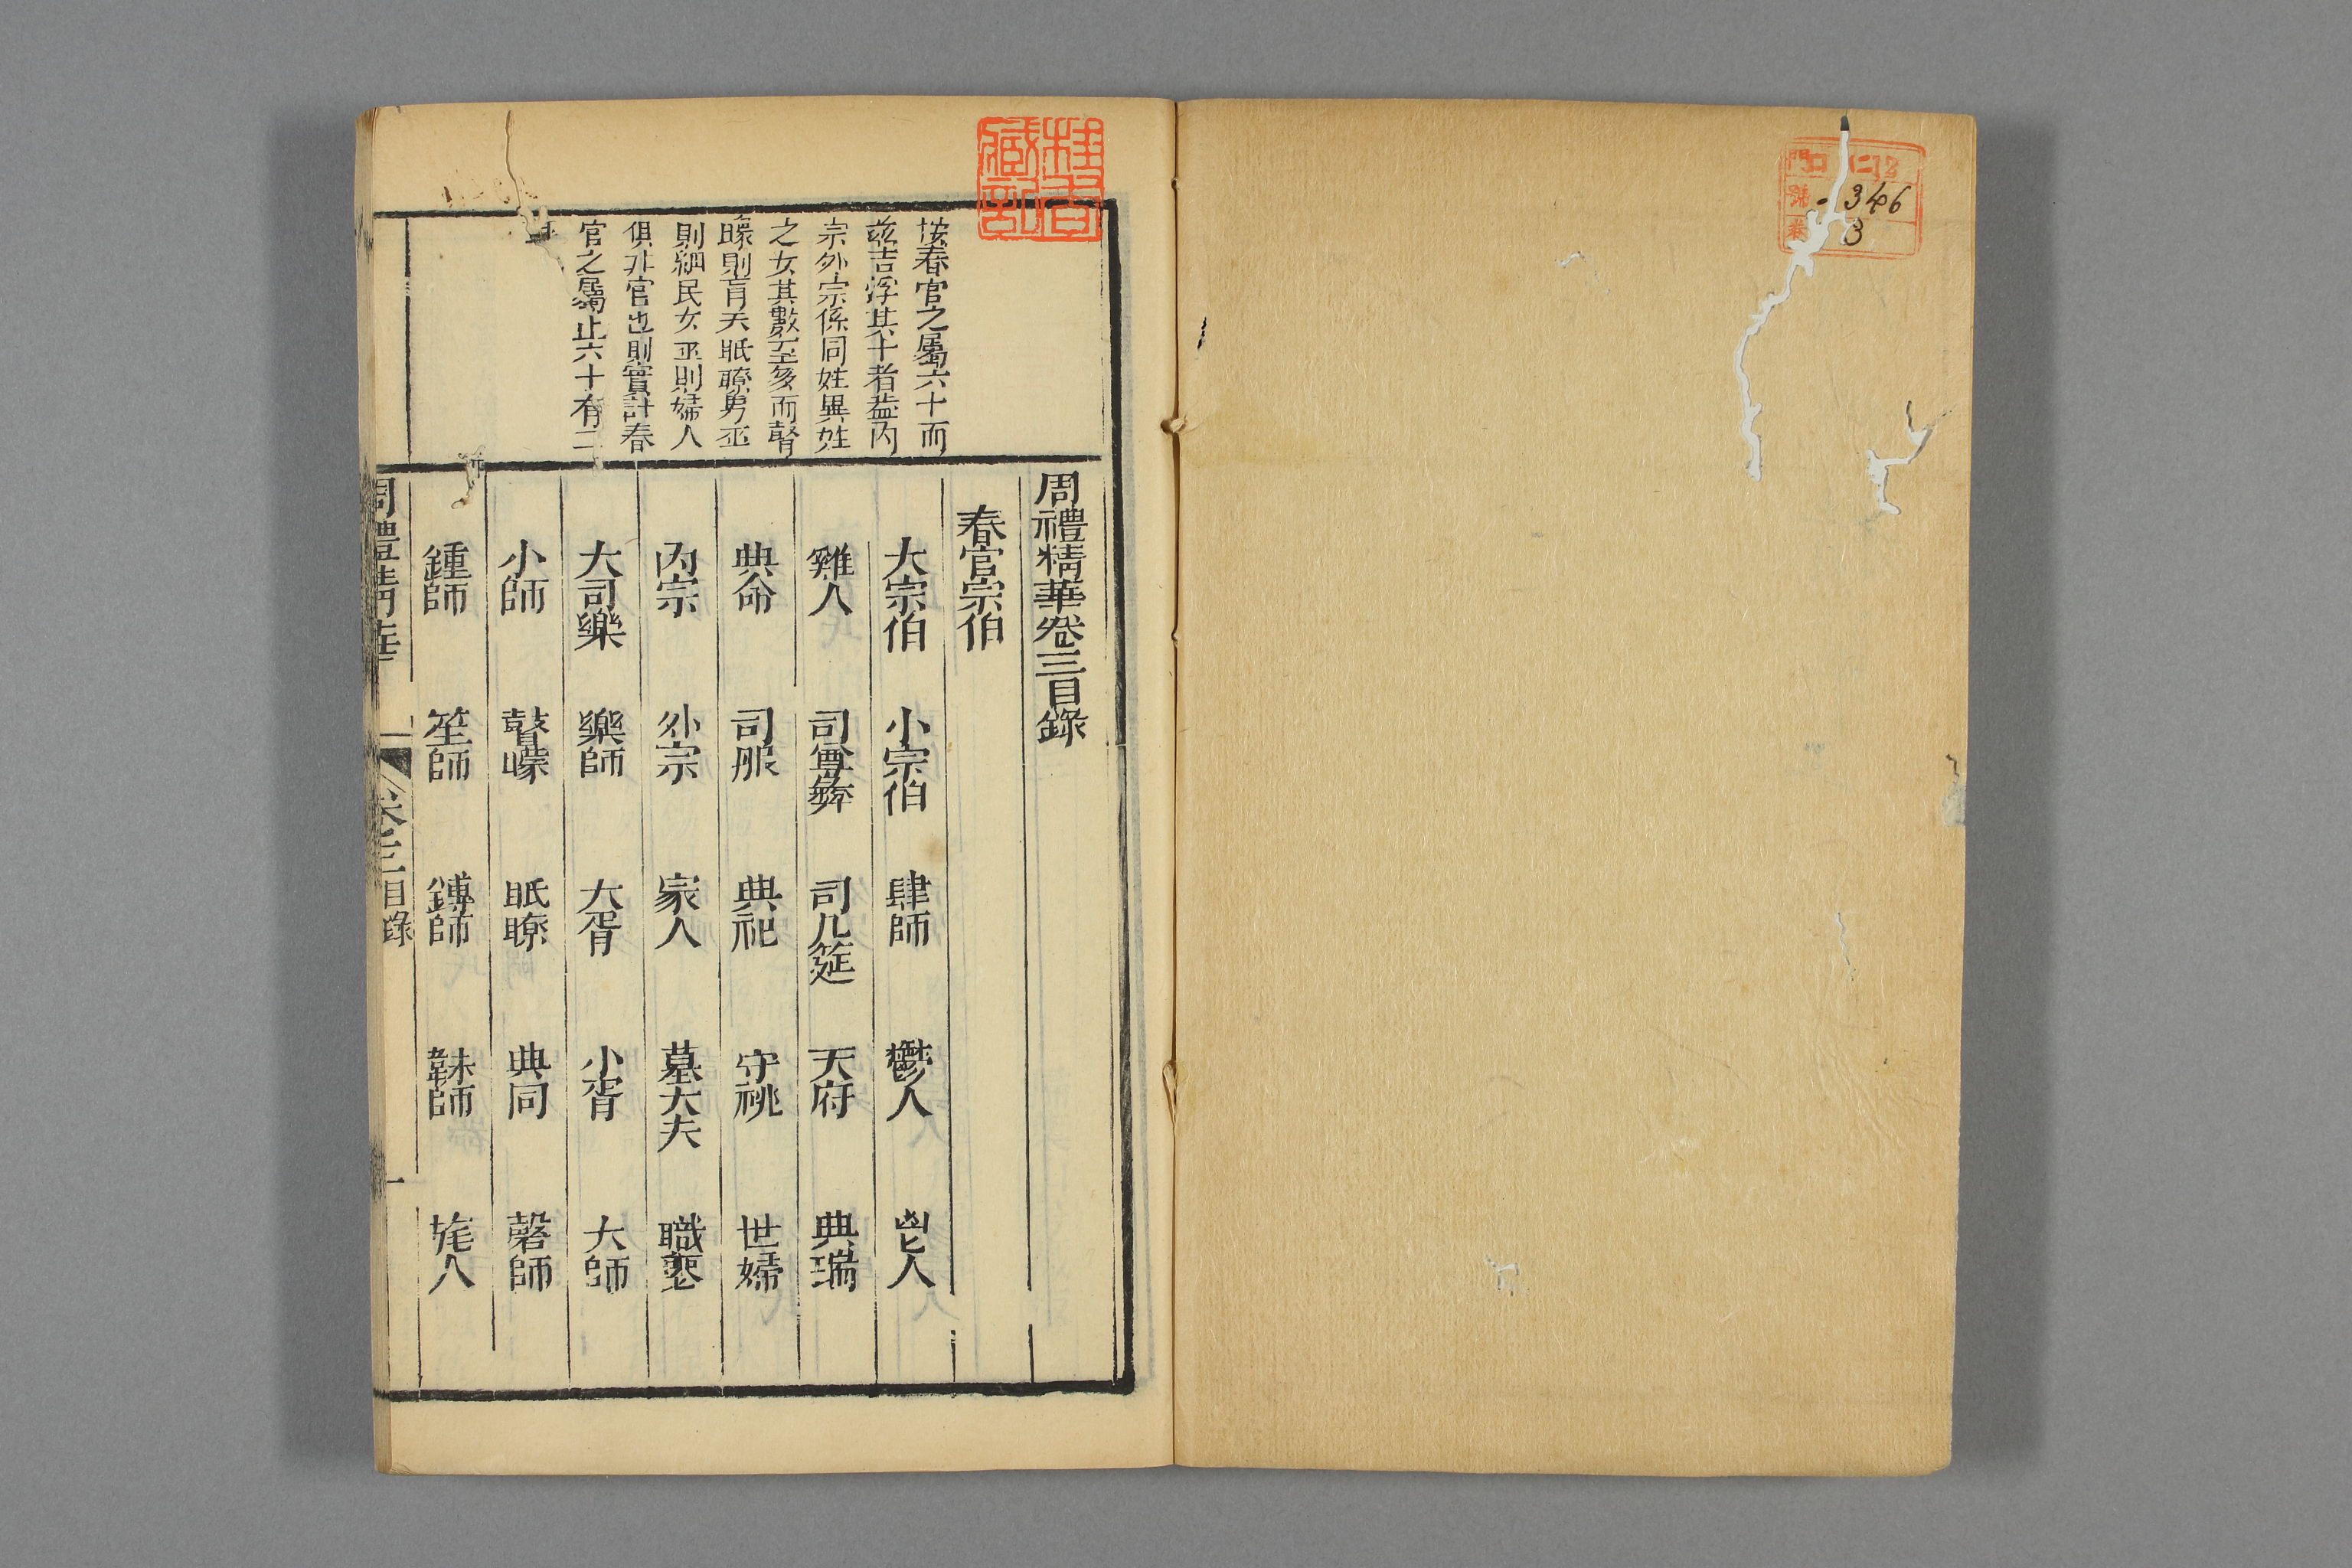 門 口 仁13
號 346
卷 3
按春官之屬六十而
玆吉浮其十者葢內
宗外宗係同姓異姓
之女其數至多而瞽
矇則盲夭眡瞭男巫
則細民女巫則婦人
俱非官也則實計春
官之屬止六十有二
周禮精華卷三目錄
春官宗伯
大宗伯 小宗伯 肆師 鬱人 鬯人
雞人 司尊彝 司几筵 天府 典瑞
典命 司服 典祀 守祧 世婦
內宗 外宗 冢人 墓大夫 職喪
大司樂 樂師 大胥 小胥 大師
小師 瞽矇 眡瞭 典同 磬師
鍾師 笙師 鎛師 韎師 旄人
周禮精華 卷三目錄 一